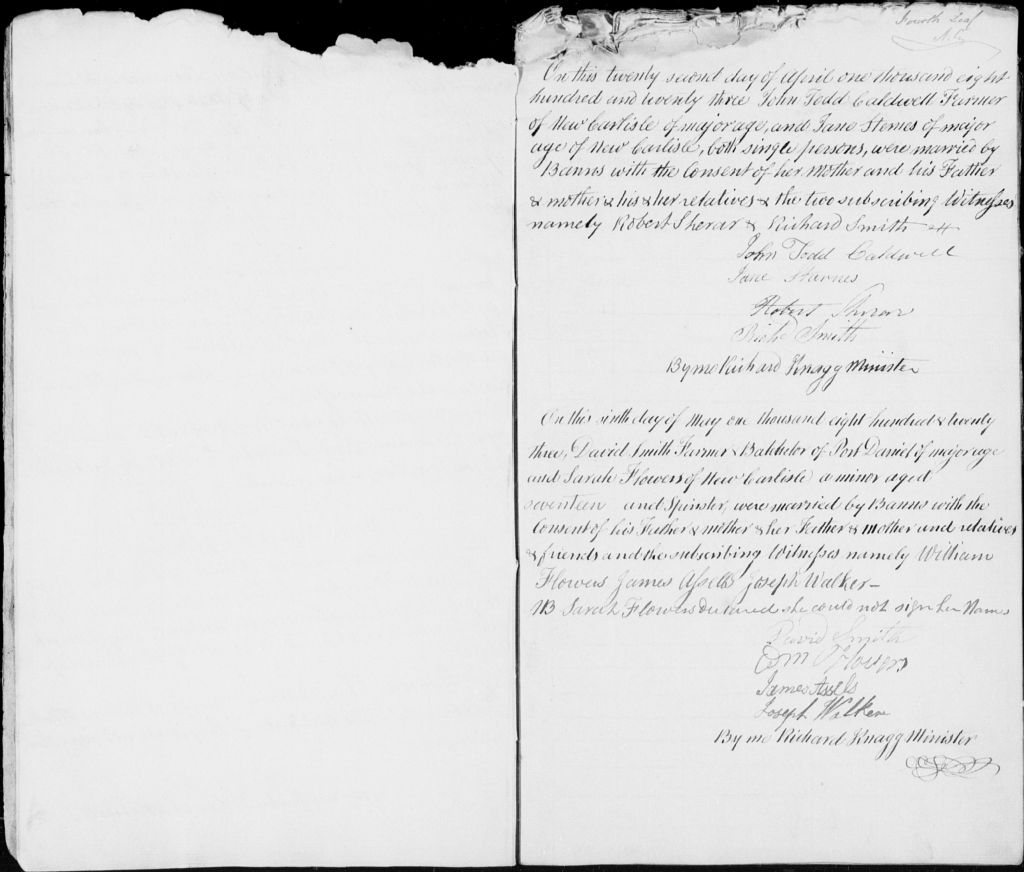 Fourth Leaf
On this twenty second day of April one thousand eight
hundred and twenty three John Todd Caldwell Farmer
of New Carlisle of major age, and Jane Sternes of major
age of New Carlisle, both single persons, were married by
Banns with the Consent of her Mother and his Father
& mother & his & her relatives & the two subscribing Witnesses
namely Robert Sherar & Richard Smith
John Todd Caldwell
Jane Starnes
Robert Sherar
Smith
By me Richard Knagg Minister
On this sixth day of May one thousand eight hundred & twenty
three, David Smith Farmer & Batchelor of Port Daniel of major age
and Sarah Flowers of New Carlisle a minor aged
seventeen and Spinster, were married by Banns with the
Consent of his Father & mother & her Father & mother and relatives
& friends and the subscribing Witnesses namely William
Flowers James Assells Joseph Walker—
NB Sarah Flowers declared she could not sign her Name
David Smith
Wm Flowers
James Assels
Joseph Walker
By me Richard Knagg Minister